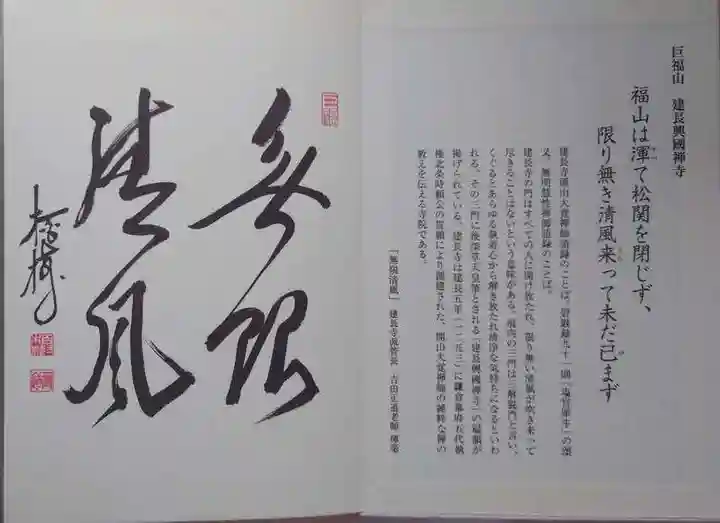 巨福山　建長興國禅寺
福山は渾て松関を閉じず、
限り無き清風来って未だ已まず
建長寺開山大覚禅師語録のことば。碧巌録九十一則「塩官犀牛」の頌
又、無明慧性禅師語録のことば。
建長寺の門はすべての人に開け放たれ、限り無い清風が吹き来って
尽きることはないという意味がある。禅宗の三門は三解脱門と言い、
くぐるとあらゆる執着心から解き放たれ清浄な気持ちになるといわ
れる。その三門に後深草天皇筆とされる「建長興國禅寺」の扁額が
掲げられている。建長寺は建長五年（一二五三）に鎌倉幕府五代執
権北条時頼公の冒願により創建された、開山大覚禅師の純粋な禅の
教えを伝える寺院である。
「無限清風」　建長寺派管長　吉田正道老師　揮毫
無限
清風